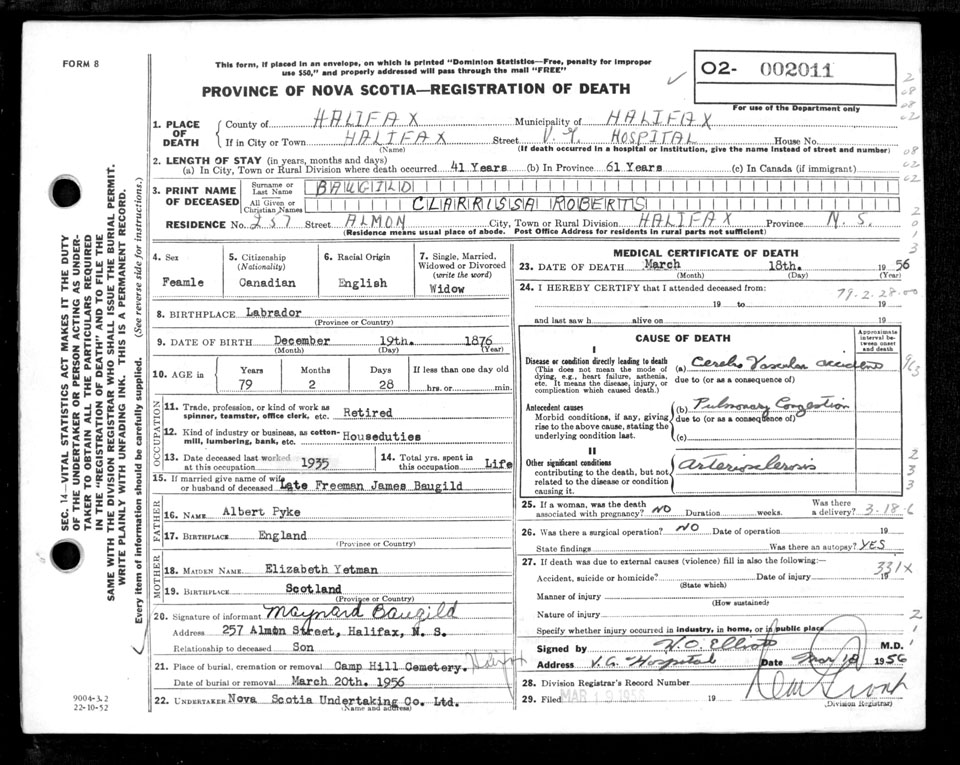 FORM 8
This form, if placed in an envelope, on which is printed "Dominion Statistics—Free, penalty for improper
use $50," and properly addressed will pass through the mail "FREE"
PROVINCE OF NOVA SCOTIA—REGISTRATION OF DEATH
02- 002011
For use of the Department only
1. PLACE OF DEATH
County of HALIFAX Municipality of HALIFAX
If in City or Town HALIFAX Street V.G. HOSPITAL House No.
(Name) (If death occurred in a hospital or institution, give the name instead of street and number)
2. LENGTH OF STAY (in years, months and days)
(a) In City, Town or Rural Division where death occurred 41 Years (b) In Province 61 Years (c) In Canada (if immigrant)
3. PRINT NAME OF DECEASED
Surname or Last Name BAUGILD
All Given or Christian Names CLARRISSA ROBERTS
RESIDENCE No. 257 Street ALMON City, Town or Rural Division HALIFAX Province N.S.
(Residence means usual place of abode. Post Office Address for residents in rural parts not sufficient)
SEC. 14—VITAL STATISTICS ACT MAKES IT THE DUTY
OF THE UNDERTAKER OR PERSON ACTING AS UNDER-
TAKER TO OBTAIN ALL THE PARTICULARS REQUIRED
IN THE "REGISTRATION OF DEATH" AND TO FILE THE
SAME WITH THE DIVISION REGISTRAR WHO SHALL ISSUE THE BURIAL PERMIT.
WRITE PLAINLY WITH UNFADING INK. THIS IS A PERMANENT RECORD.
Every item of information should be carefully supplied. (See reverse side for instructions.)
4. Sex
Feamle
5. Citizenship
(Nationality)
Canadian
6. Racial Origin
English
7. Single, Married,
Widowed or Divorced
(write the word)
Widow
8. BIRTHPLACE Labrador
(Province or Country)
9. DATE OF BIRTH December 19th. 1876
(Month) (Day) (Year)
10. AGE in
Years Months Days If less than one day old
79 2 28 hrs. or min.
OCCUPATION
11. Trade, profession, or kind of work as
spinner, teamster, office clerk, etc. Retired
12. Kind of industry or business, as cotton-
mill, lumbering, bank, etc. Houseduties
13. Date deceased last worked
at this occupation 1935
14. Total yrs. spent in
this occupation Life
15. If married give name of wife
or husband of deceased Late Freeman James Baugild
FATHER
16. NAME Albert Pyke
17. BIRTHPLACE England
(Province or Country)
MOTHER
18. MAIDEN NAME Elizabeth Yetman
19. BIRTHPLACE Scotland
(Province or Country)
20. Signature of informant Maynard Baugild
Address 257 Almon Street, Halifax, N. S.
Relationship to deceased Son
21. Place of burial, cremation or removal Camp Hill Cemetery. Halifax
Date of burial or removal March 20th. 1956
22. UNDERTAKER Nova Scotia Undertaking Co. Ltd.
(Name and address)
9004-3.2
22-10-52
MEDICAL CERTIFICATE OF DEATH
23. DATE OF DEATH March 18th. 1956
(Month) (Day) (Year)
24. I HEREBY CERTIFY that I attended deceased from:
79-2-28-00
19 to 19
and last saw h alive on 19
CAUSE OF DEATH
Approximate interval between onset and death
I
Disease or condition directly leading to death
(This does not mean the mode of
dying, e.g., heart failure, asthenia,
etc. It means the disease, injury, or
complication which caused death.)
(a) Cerebro Vascular accident
due to (or as a consequence of)
Antecedent causes
Morbid conditions, if any, giving
rise to the above cause, stating the
underlying condition last.
(b) Pulmonary Congestion
due to (or as a consequence of)
(c)
II
Other significant conditions
contributing to the death, but not
related to the disease or condition
causing it.
Arteriosclerosis
25. If a woman, was the death
associated with pregnancy? NO Duration weeks. Was there a delivery? 3-18-6
26. Was there a surgical operation? NO Date of operation 19
State findings Was there an autopsy? YES
27. If death was due to external causes (violence) fill in also the following:—
331X
Accident, suicide or homicide? Date of injury 19
(State which)
Manner of injury
(How sustained)
Nature of injury
Specify whether injury occurred in industry, in home, or in public place
Signed by H.O. Elliott M.D.
Address V.G. Hospital Date Mar 18 1956
28. Division Registrar's Record Number
29. Filed MAR 19 1956 19
(Division Registrar)